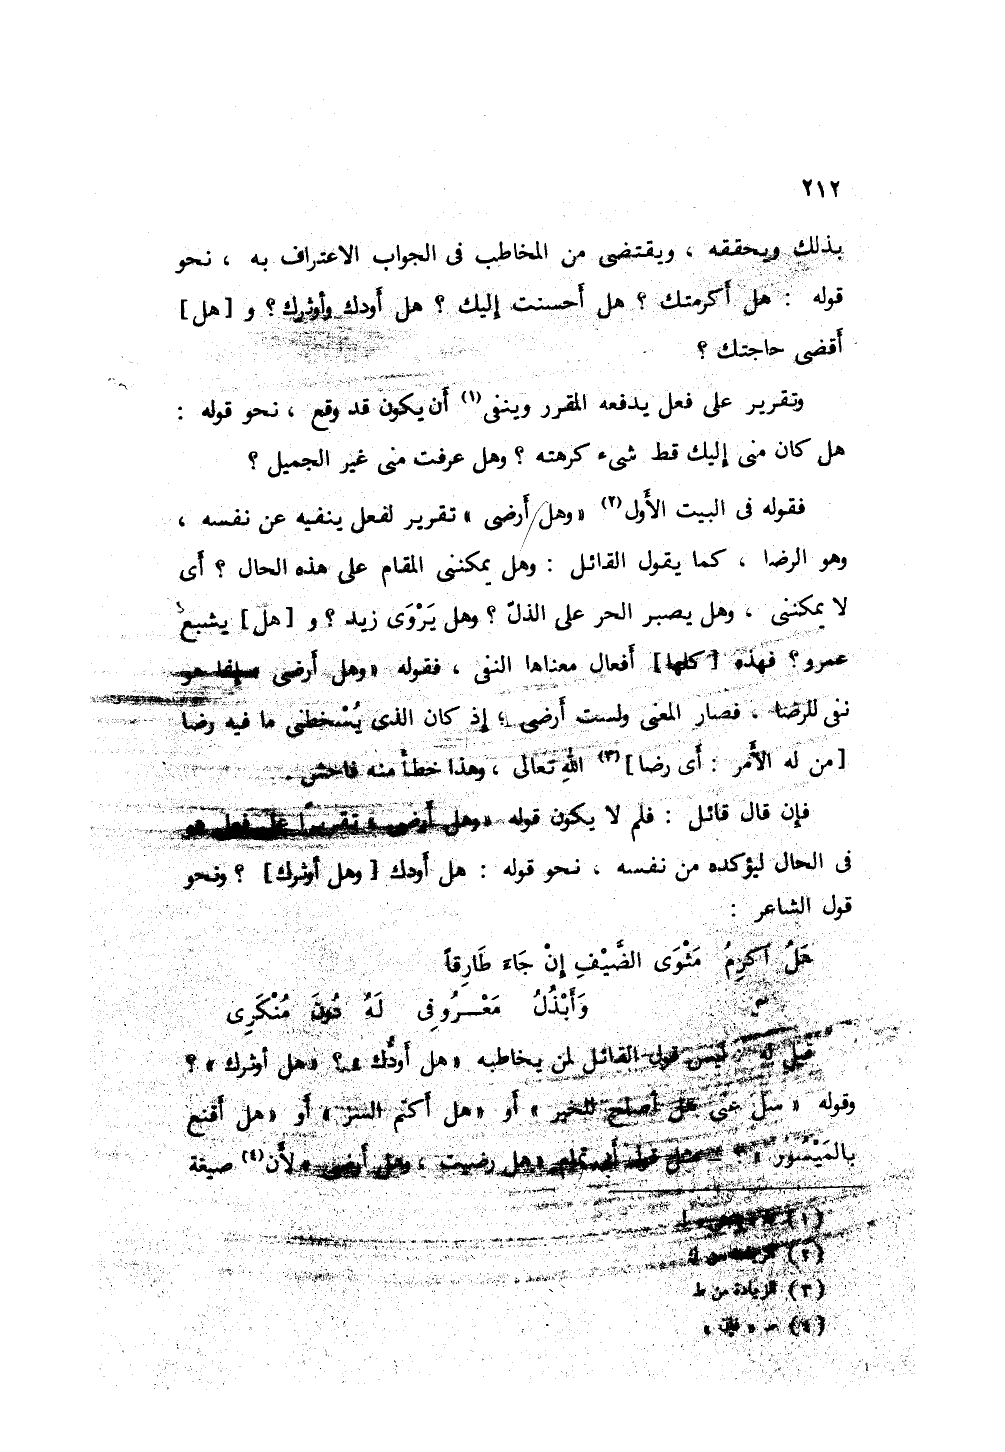 ٢١٢
بذلك ويحققه ، ويقتضى من المخاطب فى الجواب الاعتراف به ، نحو
قوله : هل أكرمتك ؟ هل أحسنت إليك ؟ هل أودك وأوثرك ؟ و [ هل ]
أقضى حاجتك ؟
وتقرير على فعل يدفعه المقرر وينفى (١) أن يكون قد وقع ، نحو قوله :
هل كان منى إليك قط شىء كرهته ؟ وهل عرفت منى غير الجميل ؟
فقوله فى البيت الأول (٢) « وهل أرضى » تقرير لفعل ينفيه عن نفسه ،
وهو الرضا ، كما يقول القائل : وهل يمكننى المقام على هذه الحال ؟ أى
لا يمكننى ، وهل يصبر الحر على الذلّ ؟ وهل يَرْوَى زيد ؟ و [ هل ] يشبع
عمرو ؟ فهذه [ كلها ] أفعال معناها النفى ، فقوله « وهل أرضى » إنما هو
نفى للرضا ، فصار المعنى ولست أرضى ؛ إذ كان الذى يُسْخطنى ما فيه رضا
[ من له الأمر : أى رضا ] (٣) الله تعالى ، وهذا خطأ منه فاحش .
فإن قال قائل : فلم لا يكون قوله « وهل أرضى » تقريرًا على فعل هو
فى الحال ليؤكده من نفسه ، نحو قوله : هل أودك [ وهل أوثرك ] ؟ ونحو
قول الشاعر :
هَلْ أكرِمُ مَثْوَى الضَّيْفِ إنْ جَاءَ طَارِقاً
وَأَبْذُلُ مَعْـرُوفِى لَهُ دُونَ مُنْكَرِى
قيل له : ليس قول القائل لمن يخاطبه « هل أودُّك » ؟ « هل أوثرك » ؟
وقوله « سل عنى هل أصلح للخير » أو « هل أكتم السر » أو « هل أقنع
بالمَيْسُور » ؟ هل قول أبى تمام « هل رضيت ، وهل أرضى » لأن (٤) صيغة
(١)
(٢)
(٣) الزيادة من ط
(٤)